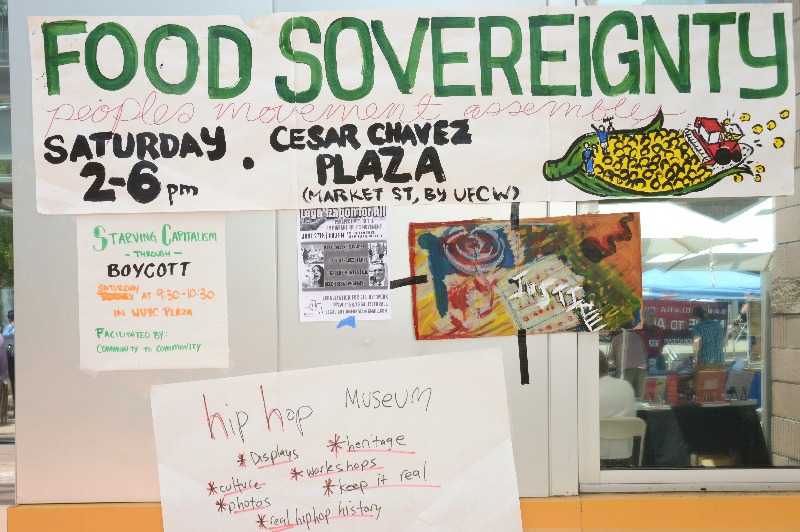 FOOD SOVEREIGNTY
peoples movement assembly
SATURDAY • CESAR CHAVEZ
2-6pm PLAZA
(MARKET ST, BY UFCW)
STARVING CAPITALISM
- THROUGH -
BOYCOTT
SATURDAY
AT 9:30-10:30
IN WUYC PLAZA
FACILITATED BY:
COMMUNITY TO COMMUNITY
LEGALIZATION FOR ALL NETWORK
JUSTICE
SANTA CLARA
hip hop MUSEUM
*Displays *heritage
*culture *workshops
*photos *keep it real
*real hiphop history